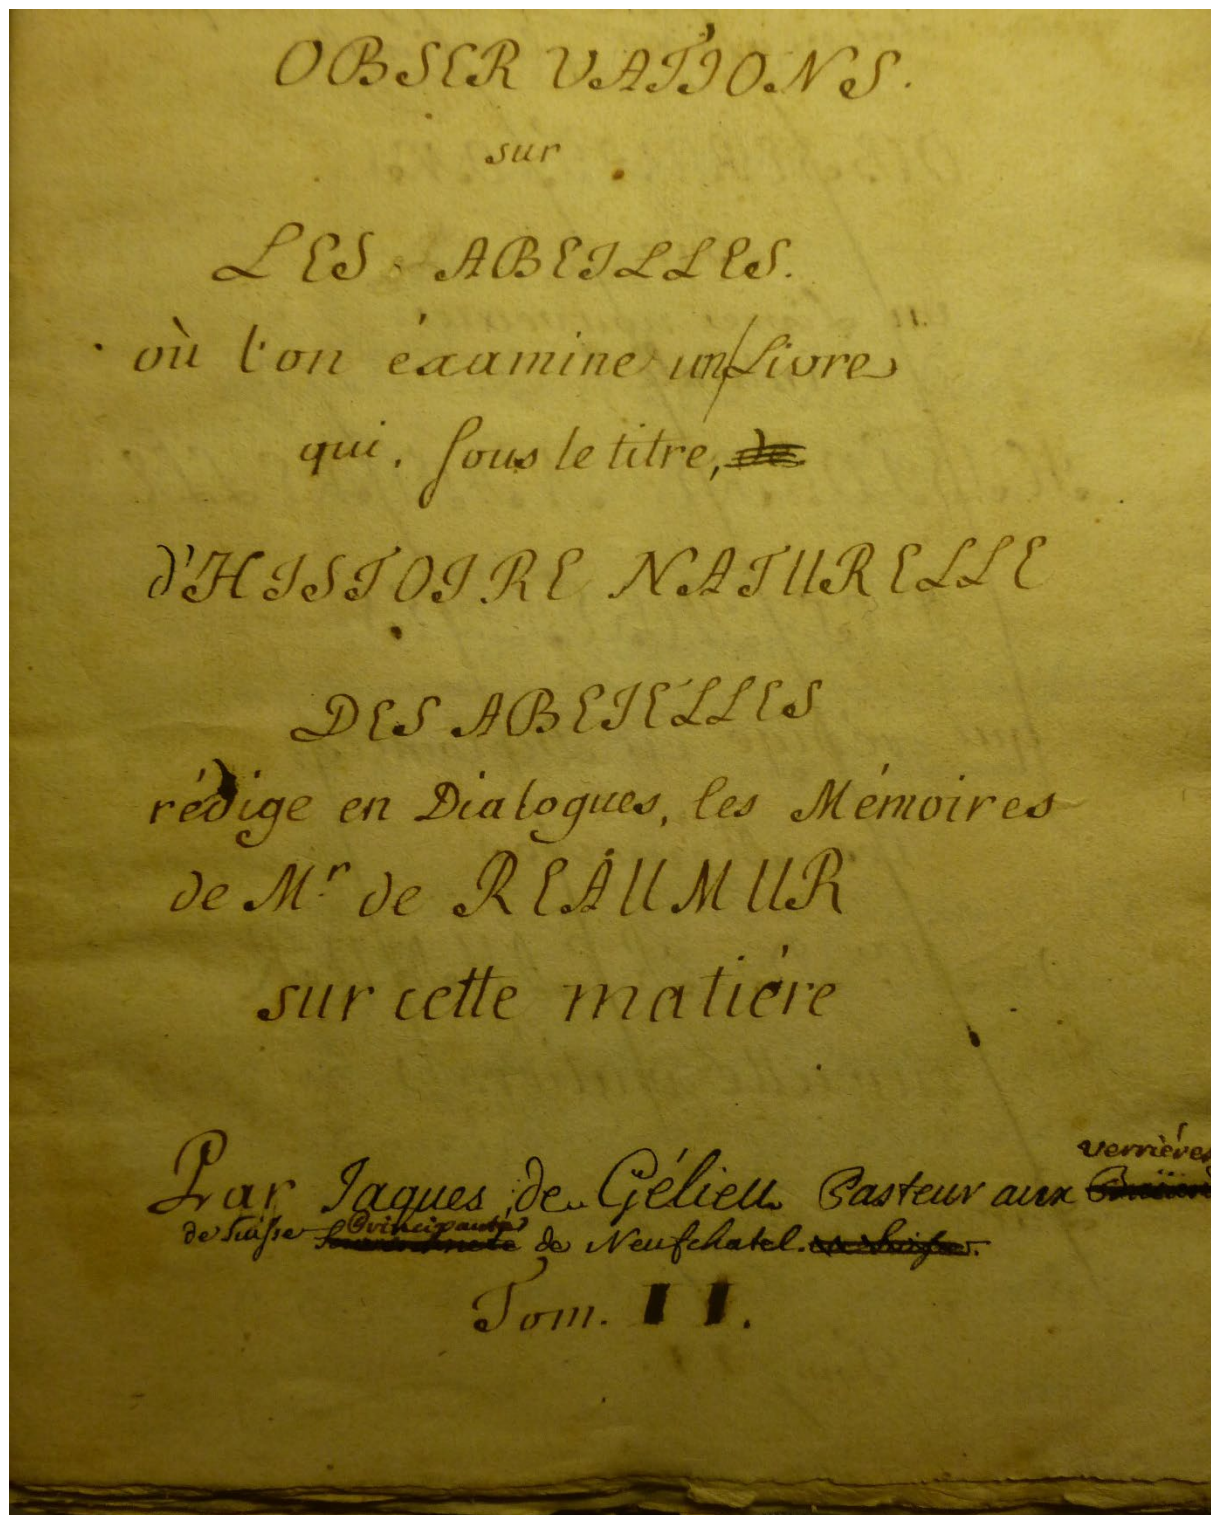 OBSERVATIONS.
sur
LES ABEILLES.
où l'on éxamine un Livre
qui, sous le titre,
d'HISTOIRE NATURELLE
DES ABEIELLES
rédige en Dialogues, les Mémoires
de Mr. de REAUMUR
sur cette matiére
verriéres
Par Jaques de Gélieu Pasteur aux
de Suisse Principauté de Neufchatel.
Tom. II.